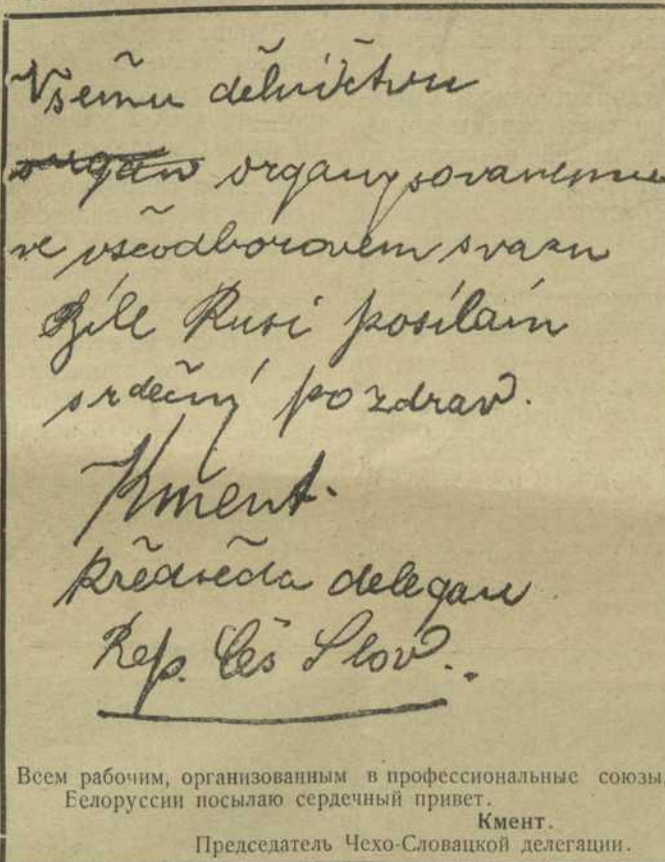 Všemu dělnictvu
organ organysovanemu
ve všeodborovem svazu
Bíle Rusi posílám
srdečný pozdrav.
Kment.
Předseda delegace
Rep. Čes Slov.
Всем рабочим, организованным в профессиональные союзы,
Белоруссии посылаю сердечный привет.
Кмент.
Председатель Чехо-Словацкой делегации.